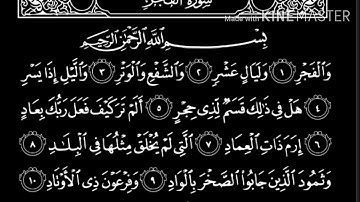 سُورَةُ الفَجْرِ
Made with KINEMASTER
بِسْمِ اللَّهِ الرَّحْمَٰنِ الرَّحِيمِ
وَالْفَجْرِ ۝١ وَلَيَالٍ عَشْرٍ ۝٢ وَالشَّفْعِ وَالْوَتْرِ ۝٣ وَالَّيْلِ إِذَا يَسْرِ
۝٤ هَلْ فِي ذَٰلِكَ قَسَمٌ لِّذِي حِجْرٍ ۝٥ أَلَمْ تَرَ كَيْفَ فَعَلَ رَبُّكَ بِعَادٍ
۝٦ إِرَمَ ذَاتِ الْعِمَادِ ۝٧ الَّتِي لَمْ يُخْلَقْ مِثْلُهَا فِي الْبِلَادِ ۝٨
وَثَمُودَ الَّذِينَ جَابُوا الصَّخْرَ بِالْوَادِ ۝٩ وَفِرْعَوْنَ ذِي الْأَوْتَادِ ۝١٠